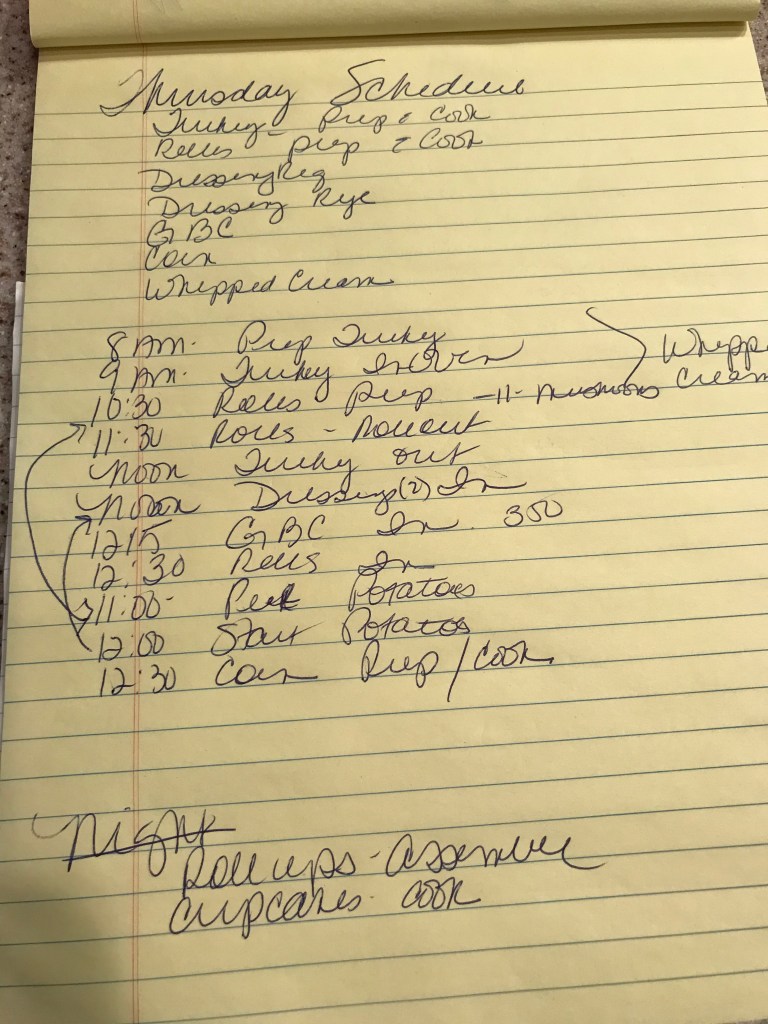 Thursday Schedule
Turkey - Prep & Cook
Rolls - prep & Cook
Dressing Reg
Dressing Rye
GBC
Corn
Whipped Cream
8 AM. Prep Turkey
9 AM. Turkey In Oven
Whipped
10:30 Rolls prep -11- Cream
11:30 Rolls - Rollout
Noon Turkey out
Noon Dressings (2) In
12 15 GBC In 350
12:30 Rolls In
11:00- Peel Potatoes
12:00 Start Potatoes
12:30 Corn Prep / Cook
Night
Roll ups - Assemble
Cupcakes - cook